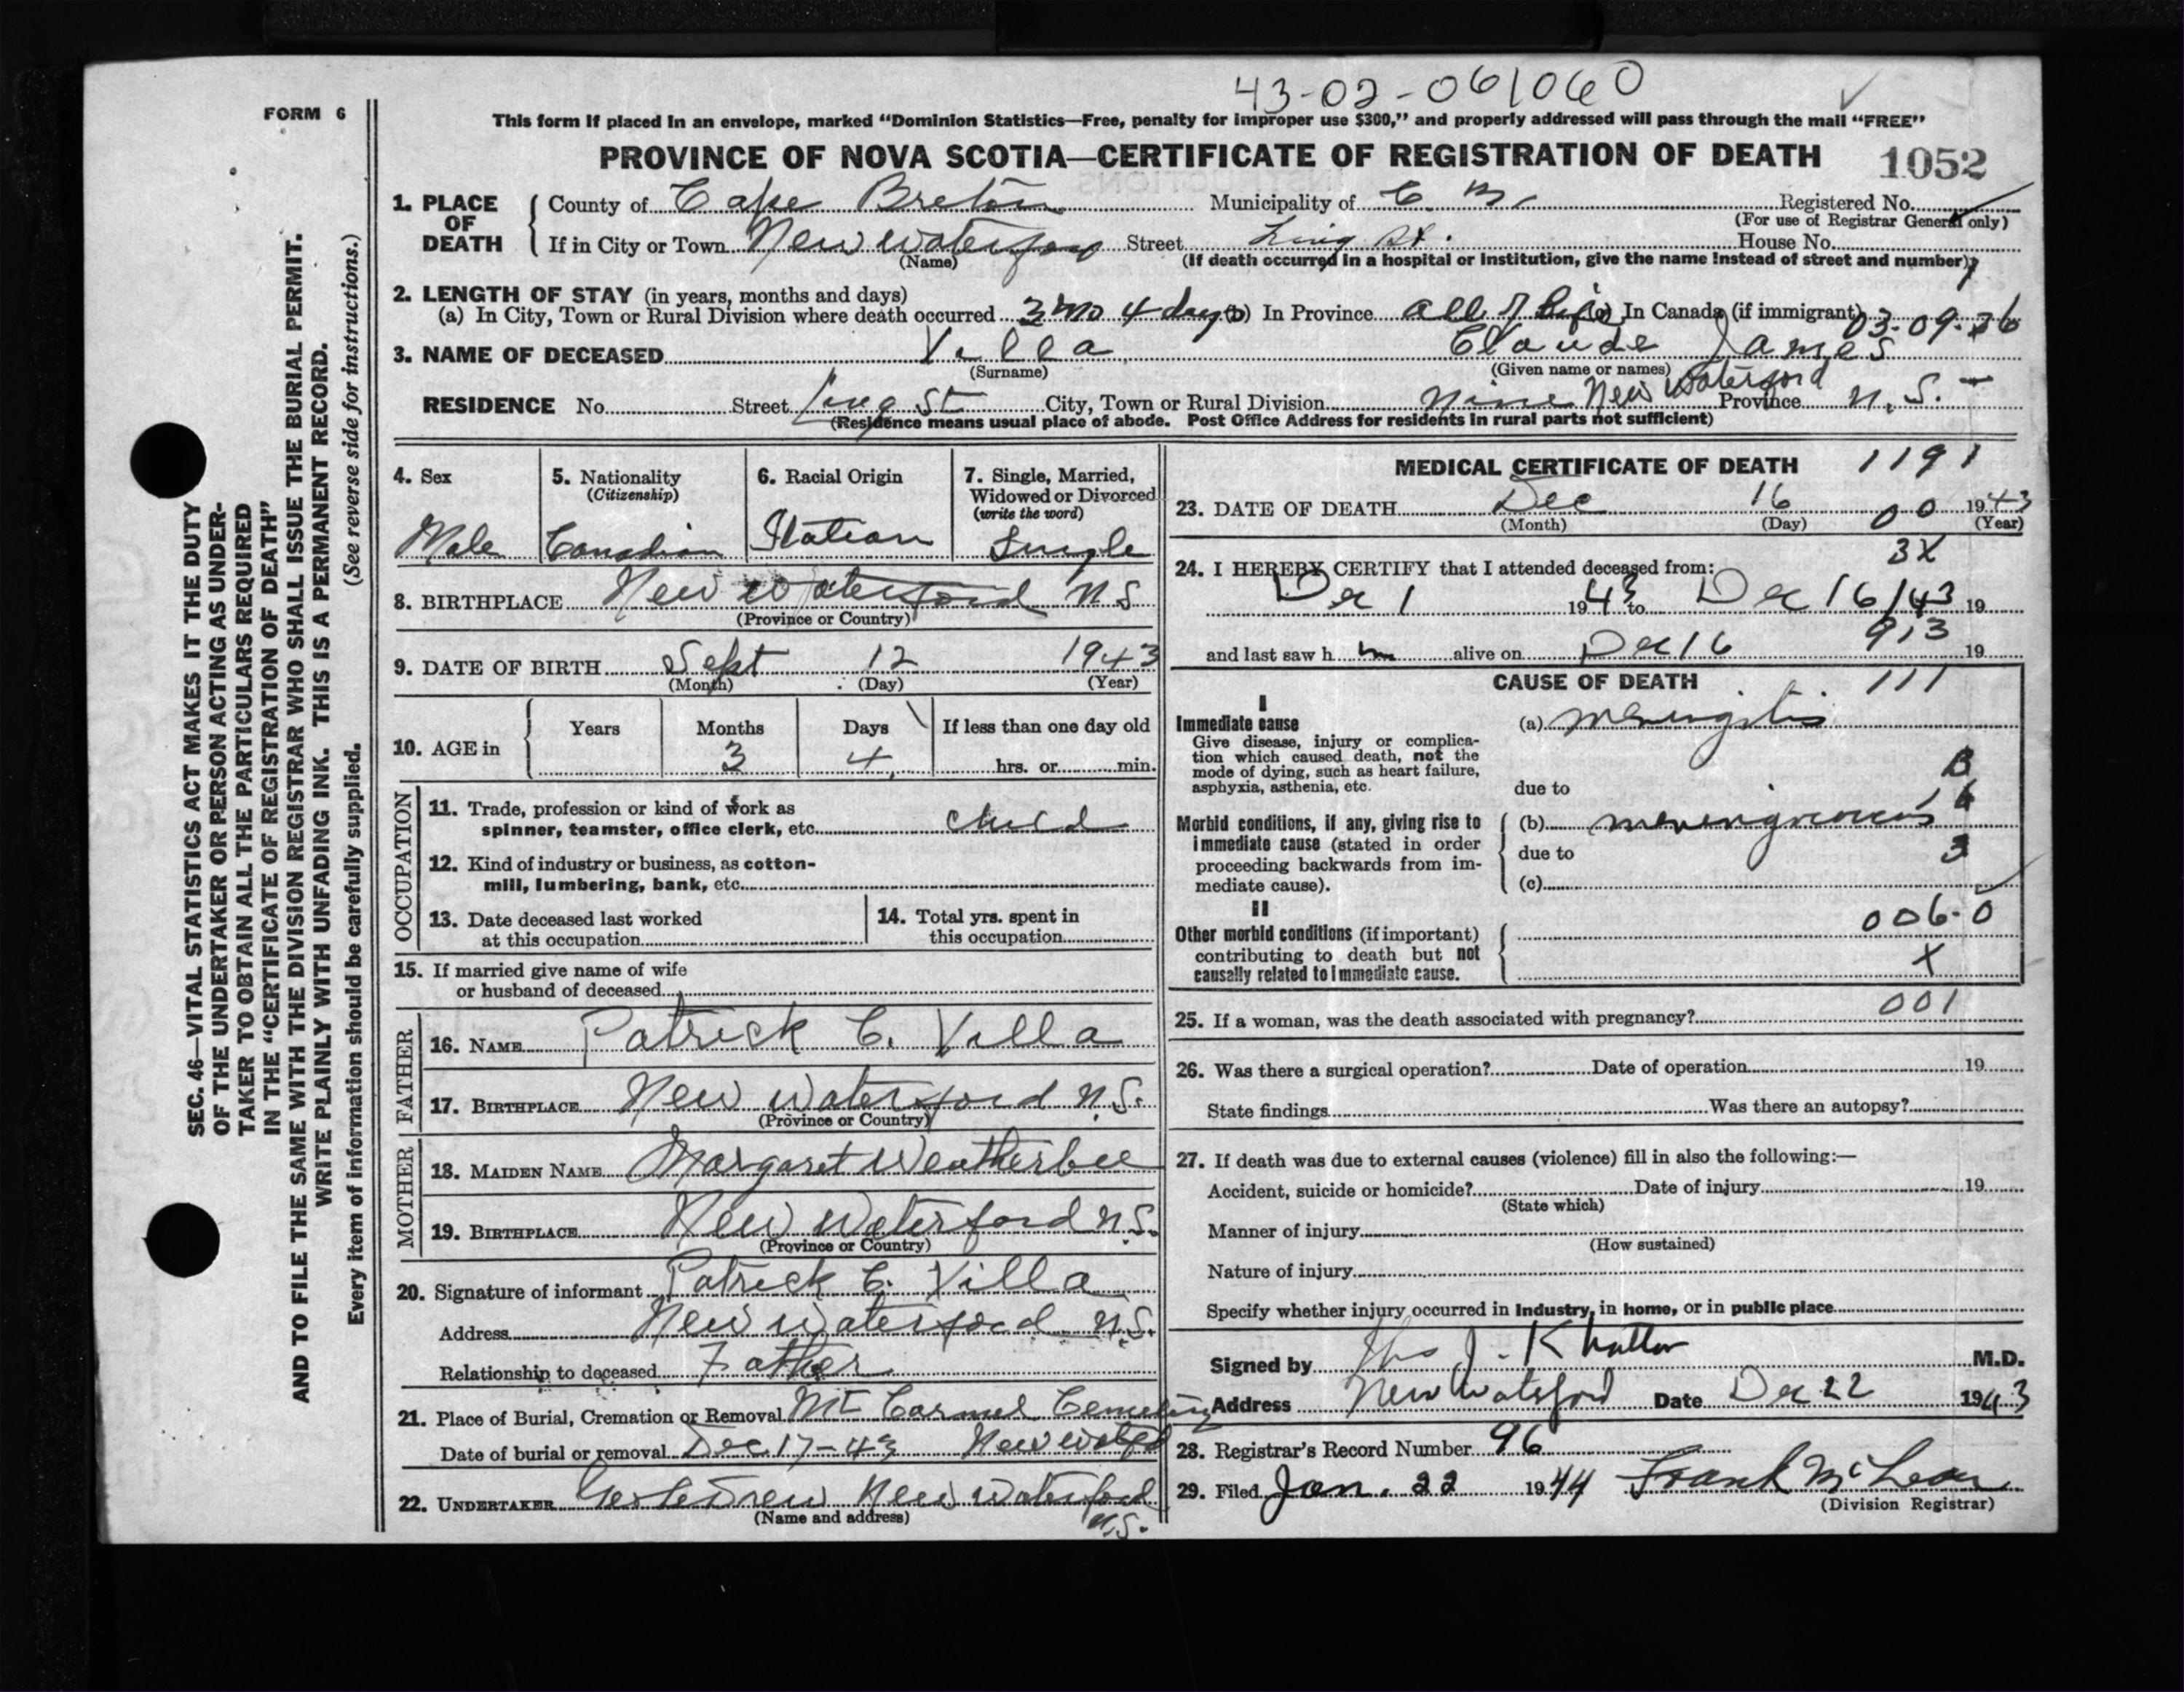 43-02-061060
FORM 6
This form if placed in an envelope, marked "Dominion Statistics—Free, penalty for improper use $300," and properly addressed will pass through the mail "FREE"
PROVINCE OF NOVA SCOTIA—CERTIFICATE OF REGISTRATION OF DEATH 1052
1. PLACE OF DEATH
County of Cape Breton Municipality of C. B. Registered No.
(For use of Registrar General only)
If in City or Town New Waterford Street Ling St. House No.
(Name) (If death occurred in a hospital or institution, give the name instead of street and number)
2. LENGTH OF STAY (in years, months and days)
(a) In City, Town or Rural Division where death occurred 3 mo 4 days (b) In Province all of life (c) In Canada (if immigrant)
03-09-26
3. NAME OF DECEASED Villa Claude James
(Surname) (Given name or names)
RESIDENCE No. Street Ling St City, Town or Rural Division New Waterford Province N.S.
(Residence means usual place of abode. Post Office Address for residents in rural parts not sufficient)
4. Sex
Male
5. Nationality
(Citizenship)
Canadian
6. Racial Origin
Italian
7. Single, Married,
Widowed or Divorced
(write the word)
Single
8. BIRTHPLACE New Waterford N.S
(Province or Country)
9. DATE OF BIRTH Sept 12 1943
(Month) (Day) (Year)
10. AGE in Years Months Days If less than one day old
3 4 hrs. or min.
OCCUPATION
11. Trade, profession or kind of work as
spinner, teamster, office clerk, etc. child
12. Kind of industry or business, as cotton-
mill, lumbering, bank, etc.
13. Date deceased last worked
at this occupation
14. Total yrs. spent in
this occupation
15. If married give name of wife
or husband of deceased
FATHER
16. NAME Patrick C. Villa
17. BIRTHPLACE New Waterford N.S.
(Province or Country)
MOTHER
18. MAIDEN NAME Margaret Weatherbee
19. BIRTHPLACE New Waterford N.S.
(Province or Country)
20. Signature of informant Patrick C. Villa
Address New Waterford N.S.
Relationship to deceased Father
21. Place of Burial, Cremation or Removal Mt Carmel Cemetery
Date of burial or removal Dec. 17-43 New Waterfd
22. UNDERTAKER New Waterford
(Name and address) N.S.
MEDICAL CERTIFICATE OF DEATH 1191
23. DATE OF DEATH Dec 16 00 1943
(Month) (Day) (Year)
3X
24. I HEREBY CERTIFY that I attended deceased from:
Dec 1 1943 to Dec 16/43 19
913
and last saw h m alive on Dec 16 19
CAUSE OF DEATH 111
I
Immediate cause (a) meningitis
Give disease, injury or complica-
tion which caused death, not the
mode of dying, such as heart failure,
asphyxia, asthenia, etc.
due to
B
16
Morbid conditions, if any, giving rise to
immediate cause (stated in order
proceeding backwards from im-
mediate cause).
(b) meningococcus
due to 3
(c)
II
006-0
Other morbid conditions (if important)
contributing to death but not
causally related to immediate cause.
X
001
25. If a woman, was the death associated with pregnancy?
26. Was there a surgical operation? Date of operation 19
State findings Was there an autopsy?
27. If death was due to external causes (violence) fill in also the following:—
Accident, suicide or homicide? Date of injury 19
(State which)
Manner of injury
(How sustained)
Nature of injury
Specify whether injury occurred in Industry, in home, or in public place
Signed by J. Khattar M.D.
Address New Waterford Date Dec 22 1943
28. Registrar's Record Number 96
29. Filed Jan. 22 1944 Frank McLean
(Division Registrar)
SEC. 46—VITAL STATISTICS ACT MAKES IT THE DUTY
OF THE UNDERTAKER OR PERSON ACTING AS UNDER-
TAKER TO OBTAIN ALL THE PARTICULARS REQUIRED
IN THE "CERTIFICATE OF REGISTRATION OF DEATH"
AND TO FILE THE SAME WITH THE DIVISION REGISTRAR WHO SHALL ISSUE THE BURIAL PERMIT.
WRITE PLAINLY WITH UNFADING INK. THIS IS A PERMANENT RECORD.
Every item of information should be carefully supplied. (See reverse side for instructions.)